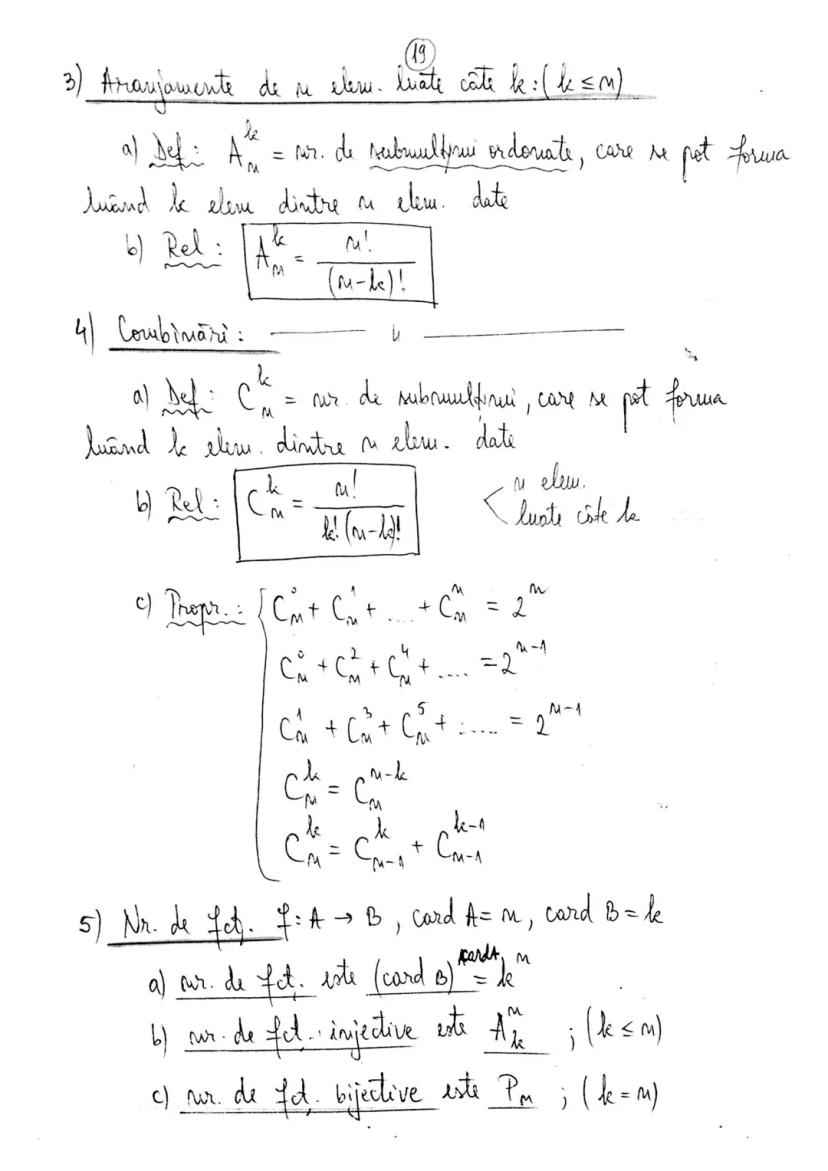 19
3) Aranjamente de n elem. luate câte k: (k ≤ n)
a) Def: A_n^k = nr. de submulțimi ordonate, care se pot forma
luând k elem dintre n elem. date
b) Rel: A_n^k = n! / (n-k)!
4) Combinări: ——— " ———
a) Def: C_n^k = nr. de submulțimi, care se pot forma
luând k elem. dintre n elem. date
b) Rel: C_n^k = n! / k!(n-k)! < n elem.
luate câte k
c) Propr.: { C_n^0 + C_n^1 + .... + C_n^n = 2^n
C_n^0 + C_n^2 + C_n^4 + .... = 2^(n-1)
C_n^1 + C_n^3 + C_n^5 + ..... = 2^(n-1)
C_n^k = C_n^(n-k)
C_n^k = C_(n-1)^k + C_(n-1)^(k-1)
5) Nr. de fcț. f: A → B, card A = n, card B = k
a) nr. de fct. este (card B)^(card A) = k^n
b) nr. de fct. injective este A_k^n ; (k ≤ n)
c) nr. de fct. bijective este P_n ; (k = n)